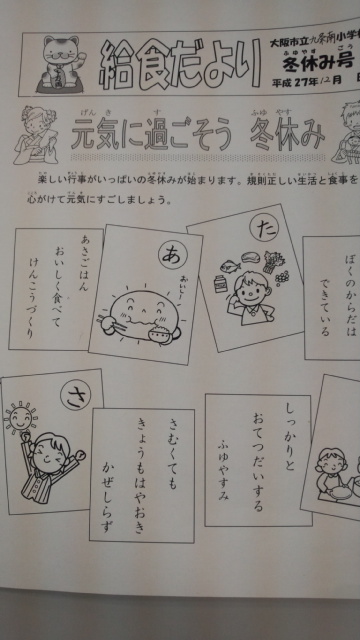 給食だより
大阪市立九条南小学校
ふゆやす ごう
冬休み号
平成27年12月
げんき す ふゆやす
元気に過ごそう 冬休み
楽しい行事がいっぱいの冬休みが始まります。規則正しい生活と食事を
心がけて元気にすごしましょう。
あさごはん
おいしく食べて
けんこうづくり
あ
おいし〜!
た
ぼくのからだは
できている
さ
さむくても
きょうもはやおき
かぜしらず
しっかりと
おてつだいする
ふゆやすみ